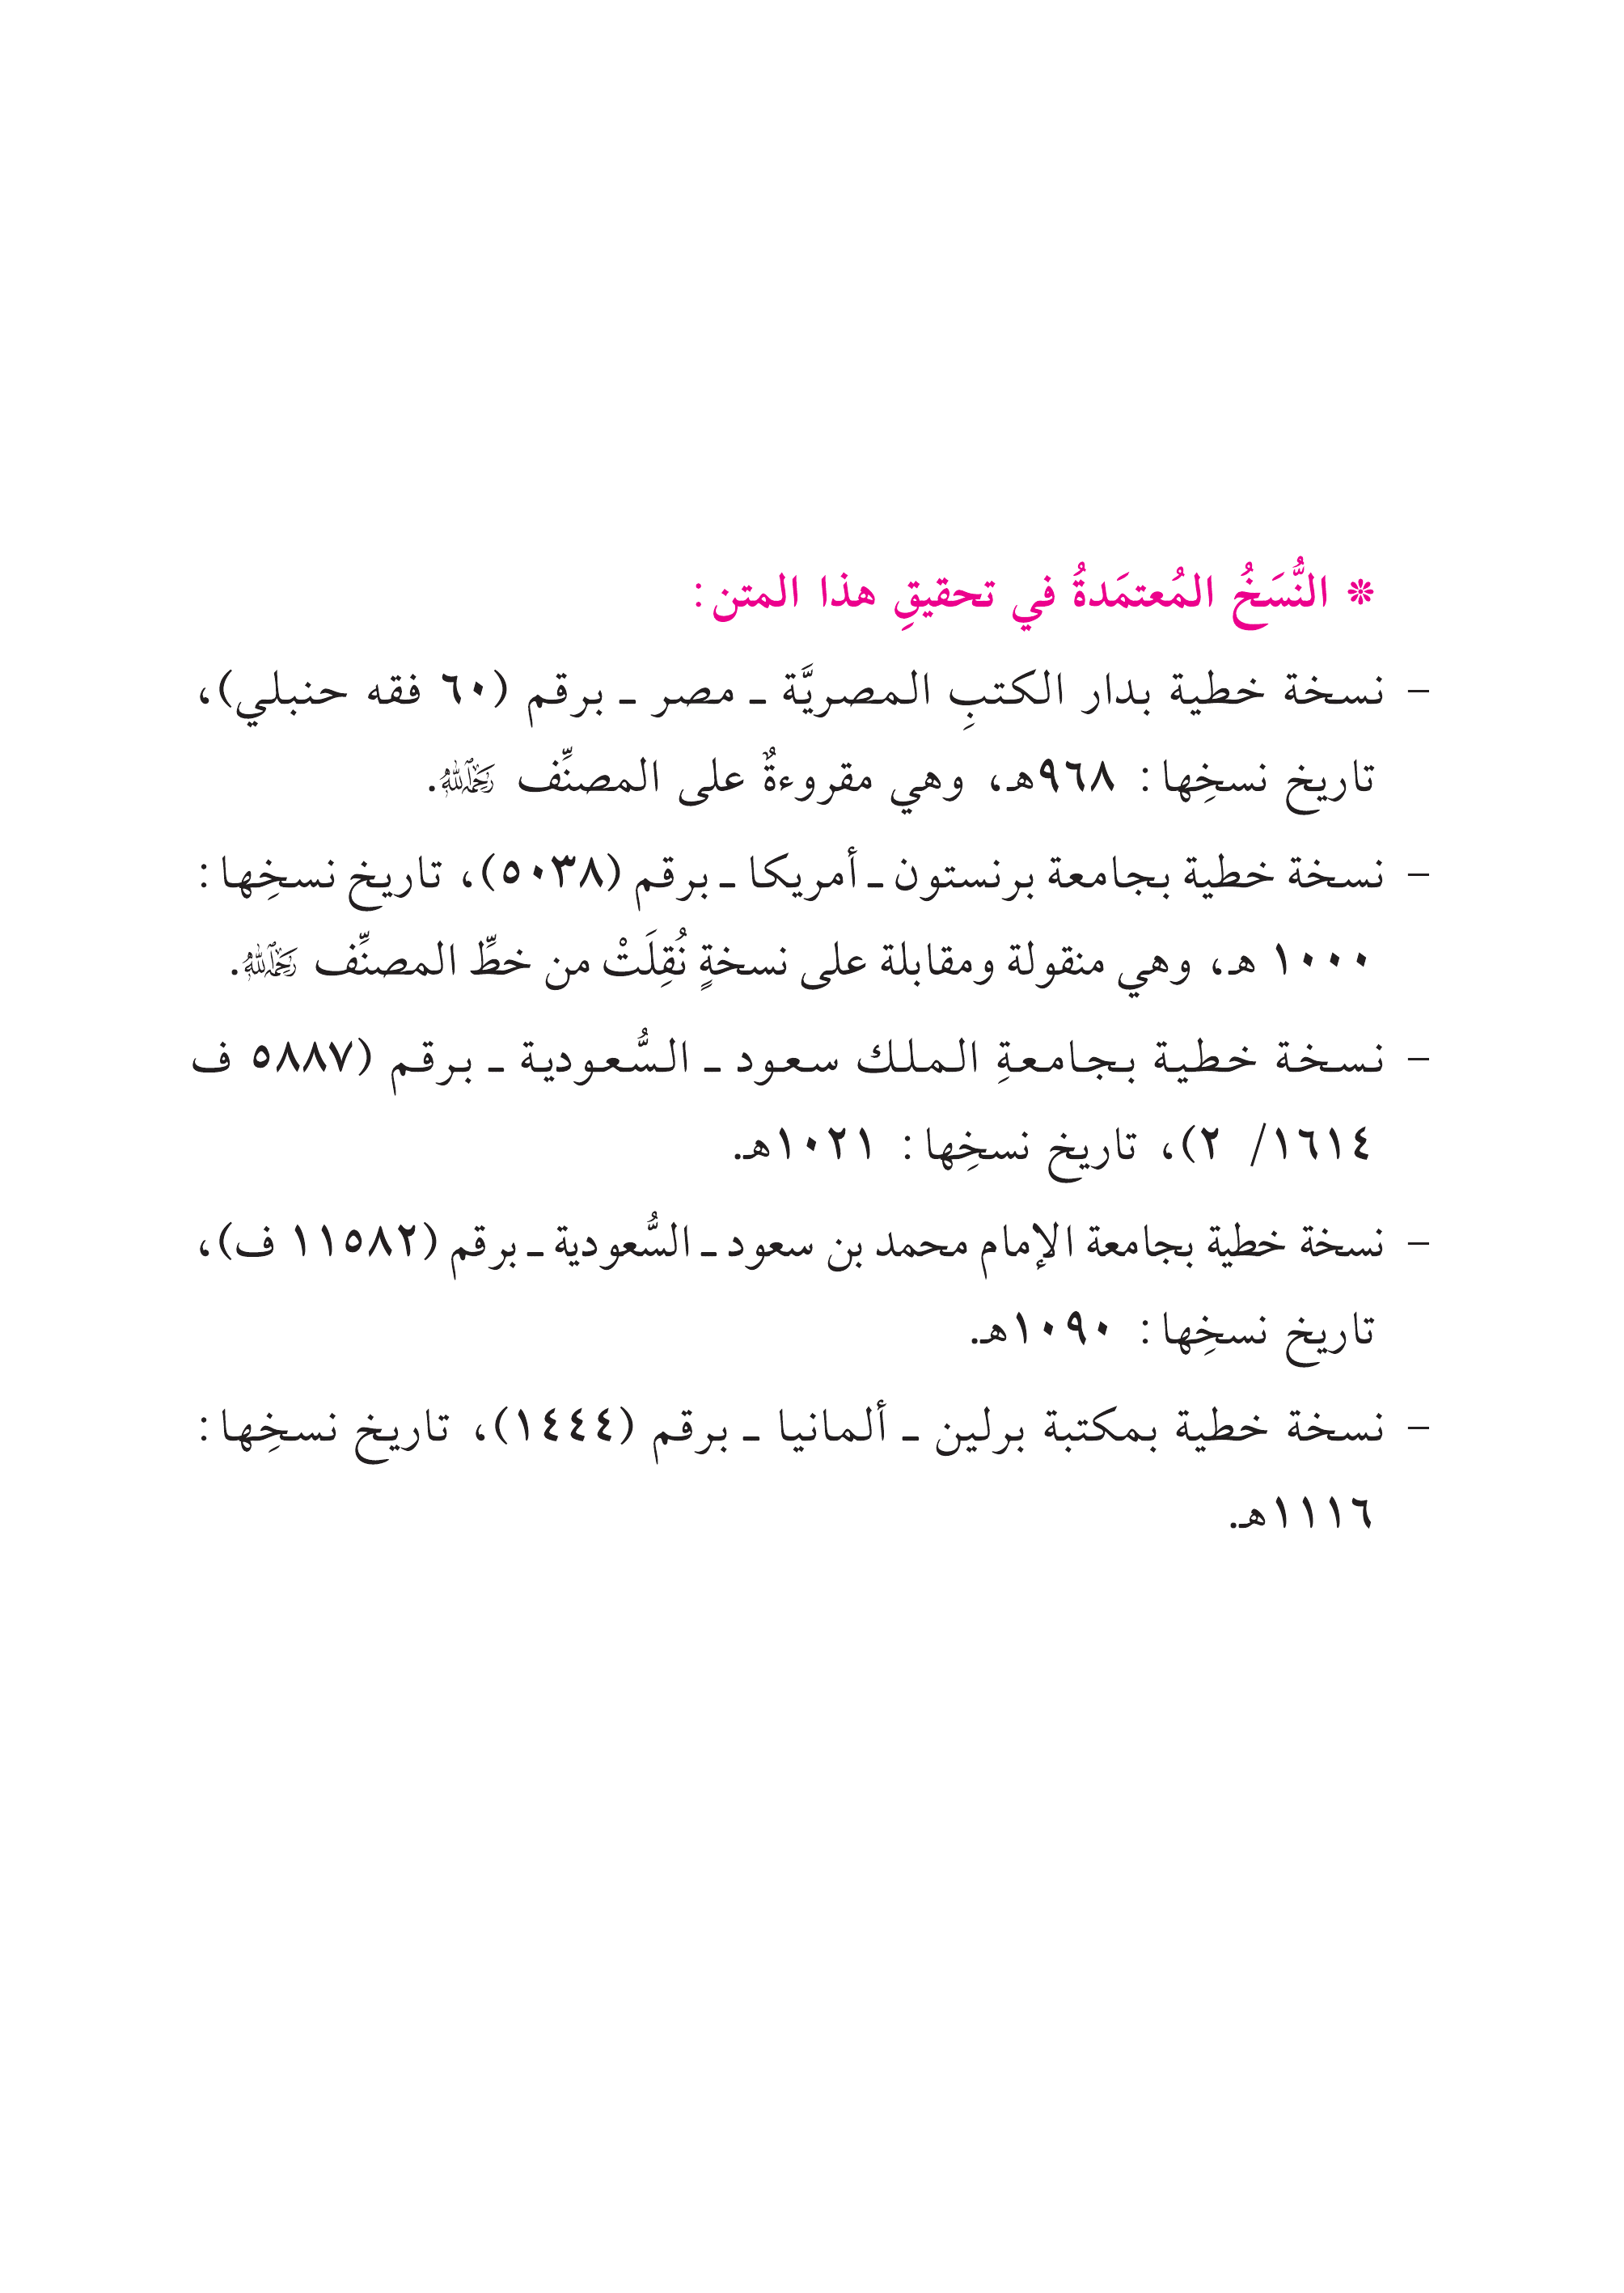 ❊ النُّسَخُ المُعتمَدةُ في تحقيقِ هذا المتن:
- نسخة خطية بدار الكتبِ المصريَّة ـ مصر ـ برقم (٦٠ فقه حنبلي)،
تاريخ نسخِها: ٩٦٨هـ، وهي مقروءةٌ على المصنِّف رَحِمَهُ اللَّهُ.
- نسخة خطية بجامعة برنستون ـ أمريكا ـ برقم (٥٠٣٨)، تاريخ نسخِها:
١٠٠٠ هـ، وهي منقولة ومقابلة على نسخةٍ نُقِلَتْ من خطِّ المصنِّف رَحِمَهُ اللَّهُ.
- نسخة خطية بجامعةِ الملك سعود ـ السُّعودية ـ برقم (٥٨٨٧ ف
١٦١٤/ ٢)، تاريخ نسخِها: ١٠٢١هـ.
- نسخة خطية بجامعة الإمام محمد بن سعود ـ السُّعودية ـ برقم (١١٥٨٢ ف)،
تاريخ نسخِها: ١٠٩٠هـ.
- نسخة خطية بمكتبة برلين ـ ألمانيا ـ برقم (١٤٤٤)، تاريخ نسخِها:
١١١٦هـ.